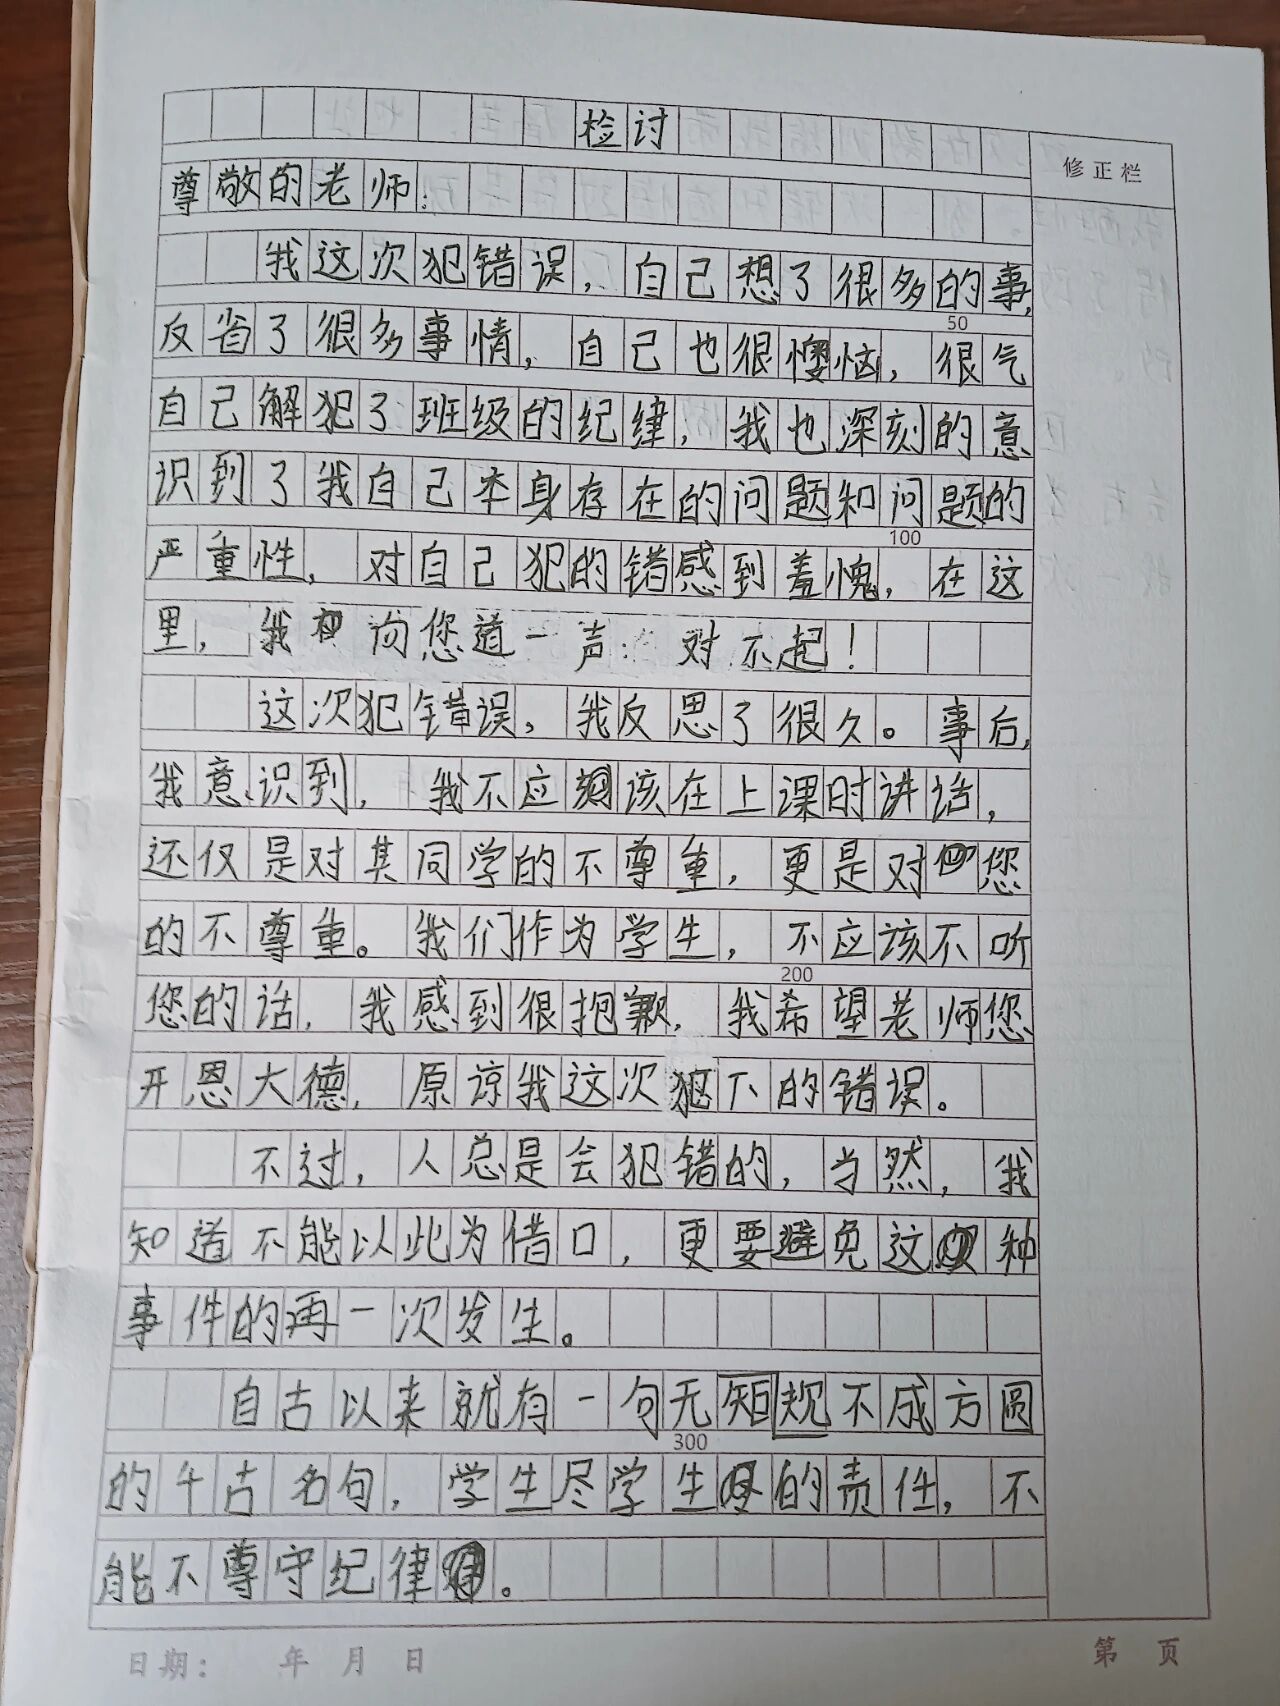 检讨
修正栏
尊敬的老师:
我这次犯错误,自己想了很多的事,
50
反省了很多事情,自己也很懊恼,很气
自己解犯了班级的纪律,我也深刻的意
识到了我自己本身存在的问题和问题的
100
严重性,对自己犯的错感到羞愧,在这
里,我向您道一声:对不起!
这次犯错误,我反思了很久。事后,
我意识到,我不应该在上课时讲话,
还仅是对其同学的不尊重,更是对您
的不尊重。我们作为学生,不应该不听
200
您的话,我感到很抱歉,我希望老师您
开恩大德,原谅我这次犯下的错误。
不过,人总是会犯错的,当然,我
知道不能以此为借口,更要避免这种
事件的再一次发生。
自古以来就有一句无矩规不成方圆
300
的千古名句,学生尽学生的责任,不
能不尊守纪律。
日期: 年 月 日
第 页